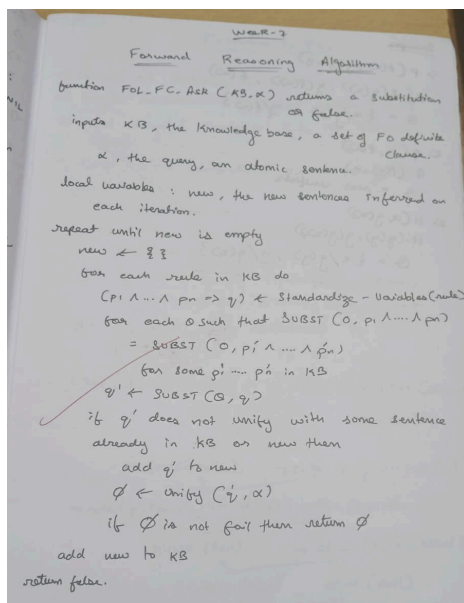 WEEK-7
Forward Reasoning Algorithm
function FOL-FC-Ask (KB, α) returns a substitution
or false.
inputs KB, the knowledge base, a set of FO definite
clause.
α, the query, an atomic sentence.
local variables : new, the new sentences inferred on
each iteration.
repeat until new is empty
new ← { }
for each rule in KB do
(p1 ∧ ... ∧ pn => q) ← Standardize - Variables (rule)
for each θ such that SUBST (θ, p1 ∧ .... ∧ pn)
= SUBST (θ, p1' ∧ .... ∧ pn')
for some p1' .... pn' in KB
q' ← SUBST (θ, q)
if q' does not unify with some sentence
already in KB or new then
add q' to new
Ø ← unify (q', α)
if Ø is not fail then return Ø
add new to KB
return false.